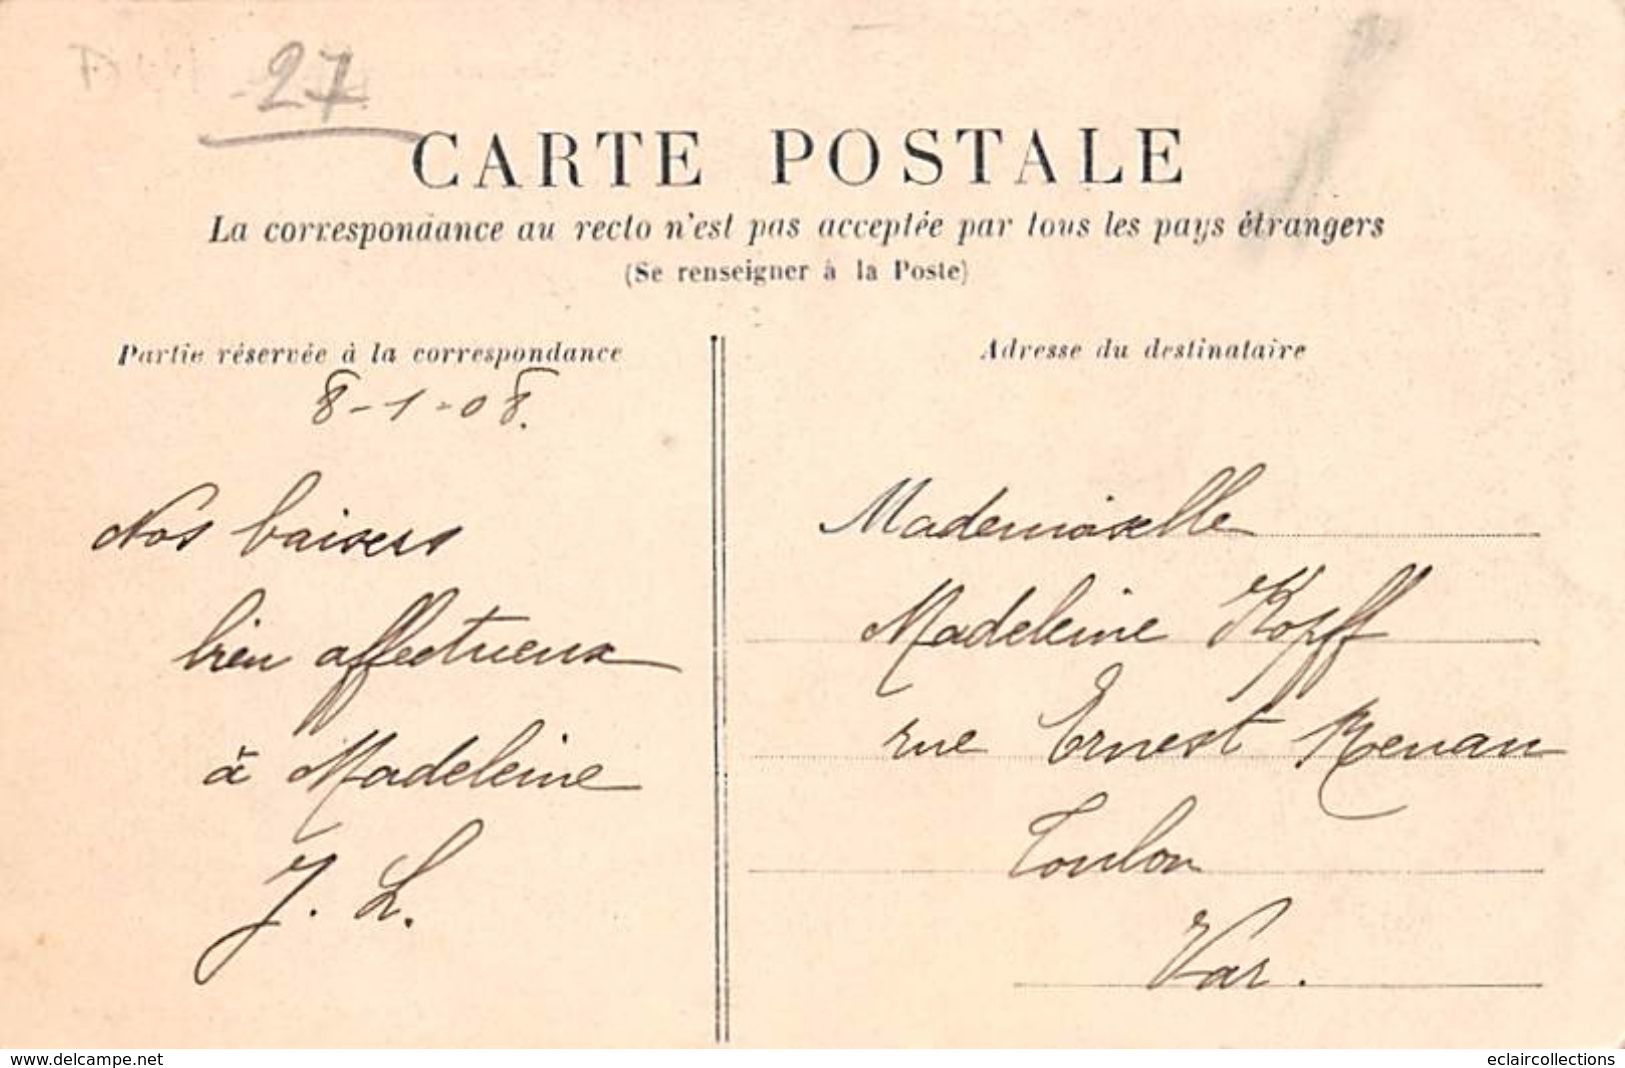 27
CARTE POSTALE
La correspondance au recto n'est pas acceptée par tous les pays étrangers
(Se renseigner à la Poste)
Partie réservée à la correspondance
8-1-08.
Nos baisers
bien affectueux
à Madeleine
J. L.
Adresse du destinataire
Mademoiselle
Madeleine Kopff
rue Ernest Renan
Toulon
Var.
www.delcampe.net
eclaircollections